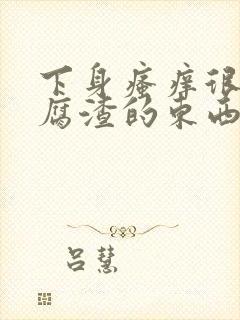 下身瘙痒很
腐渣的东西
吕慧